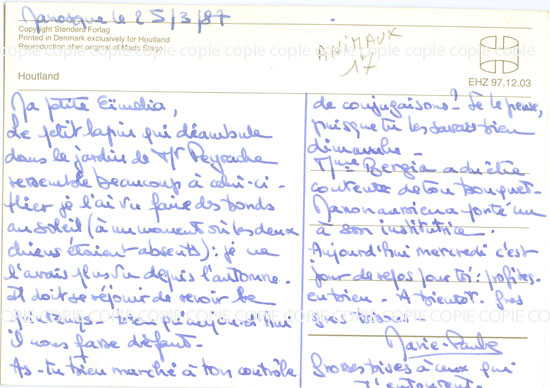 Manosque le 25/3/87
Copyright Stenders Forlag
Printed in Denmark exclusively for Houtland
Reproduction after original of Mads Stage
ANIMAUX
17
Houtland
EHZ 97.12.03
Ma ptite
Le petit lapin qui déambule
dans le jardin de Mr Peyrache
ressemble beaucoup à celui-ci -
Hier je l'ai vu faire des bonds
au soleil (à un moment où les deux
chiens étaient absents): je ne
l'avais plus vu depuis l'automne.
Il doit se réjouir de revoir le
printemps - bien qu'aujourd'hui
il nous fasse défaut -
As-tu bien marché à ton contrôle
de conjugaisons? Je le pense,
puisque tu les savais bien
dimanche -
Mme Bergia a du être
contente de ton bouquet -
Manon aussi en a porté un
à son institutrice.
Aujourd'hui mercredi c'est
jour de repos pour toi; profites-
en bien - A bientôt. Gros
gros bisous -
Marie-Paule
Grosses bises à ceux qui
t'entourent -
copie copie copie copie copie copie copie copie copie